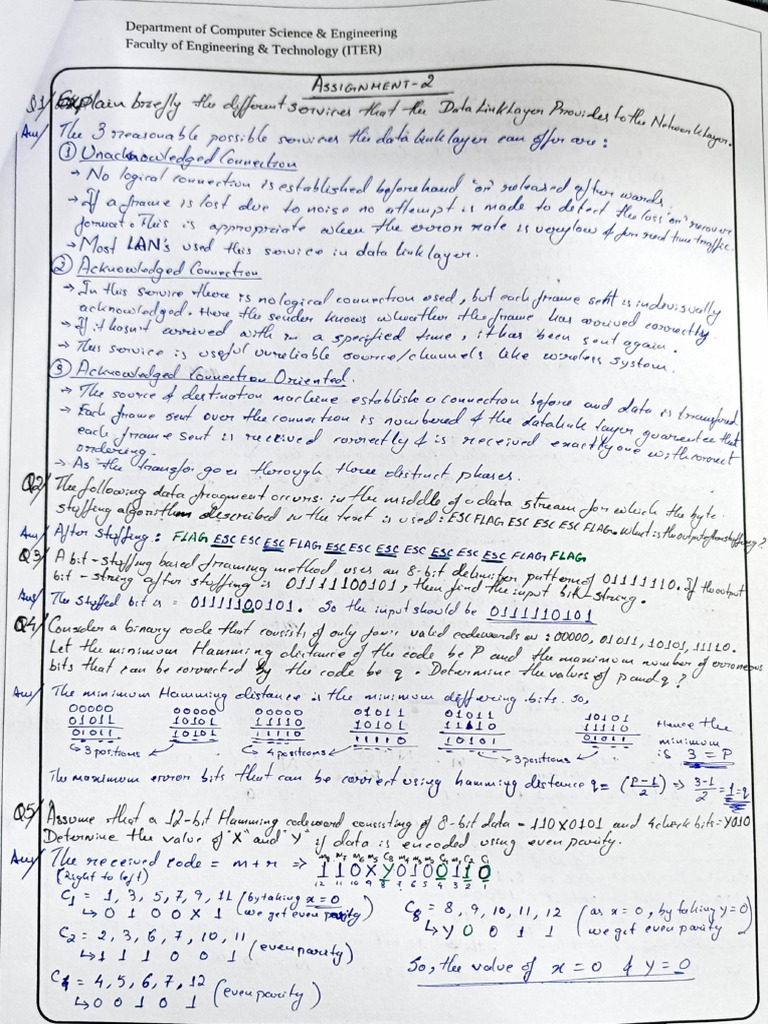 Department of Computer Science & Engineering
Faculty of Engineering & Technology (ITER)
ASSIGNMENT-2
Q1/ Explain briefly the different services that the Data Link layer Provides to the Network layer.
Ans/ The 3 reasonable possible services the data link layer can offer are:
① Unacknowledged Connection
→ No logical connection is established beforehand "or" released afterwards.
→ If a frame is lost due to noise no attempt is made to detect the loss "or" recover
format. This is appropriate when the error rate is very low & for real time traffic.
→ Most LAN's used this service in data link layer.
② Acknowledged Connection
→ In this service there is no logical connection used, but each frame sent is indevisually
acknowledged. Here the sender knows wheather the frame has arrived correctly.
→ If it hasn't arrived with in a specified time, it has been sent again.
→ This service is useful unreliable source/channels like wireless system.
③ Acknowledged Connection Oriented.
→ The source & destination machine establish a connection before and data is transfered
→ Each frame sent over the connection is numbered & the datalink layer guarantee that
each frame sent is received correctly & is received exactly one with correct
ordering.
→ As the transfer goes through three distinct phases.
Q2/ The following data fragment occurs in the middle of a data stream for which the byte
stuffing algorithm described in the text is used: ESC FLAG ESC ESC ESC FLAG. What is the output after stuffing?
Ans/ After stuffing: FLAG ESC ESC ESC FLAG ESC ESC ESC ESC ESC ESC ESC FLAG FLAG
Q3/ A bit-stuffing based framing method uses an 8-bit delimiter pattern of 01111110. If the output
bit-string after stuffing is 01111100101, then find the input bit string.
Ans/ The stuffed bit is = 01111100101. So the input should be 0111110101
Q4/ Consider a binary code that consists of only four valid codewords as: 00000, 01011, 10101, 11110.
Let the minimum Hamming distance of the code be P and the maximum number of erroneous
bits that can be corrected by the code be q. Determine the values of p and q?
Ans/ The minimum Hamming distance is the minimum differing bits. So,
00000 00000 00000 01011 01011 10101
01011 10101 11110 10101 11110 11110
01011 10101 11110 11110 10101 01011
3 positions 4 positions 3 positions
Hence the
minimum
is 3 = P
The maximum error bits that can be correct using hamming distance q = (P-1/2) ⇒ 3-1/2 = 1 = q
Q5/ Assume that a 12-bit Hamming codeword consisting of 8-bit data = 110X0101 and 4 check bits = Y010
Determine the value of "X" and "Y" if data is encoded using even parity.
Ans/ The received code = m+r ⇒ 110XY0100110
(Right to left) 12 11 10 9 8 7 6 5 4 3 2 1
C1 = 1, 3, 5, 7, 9, 11 (by taking x=0
↳ 0 1 0 0 X 1 we get even parity)
C2 = 2, 3, 6, 7, 10, 11
↳ 1 1 1 0 0 1 (even parity)
C4 = 4, 5, 6, 7, 12
↳ 0 0 1 0 1 (even parity)
C8 = 8, 9, 10, 11, 12 (as x=0, by taking y=0
↳ Y 0 0 1 1 we get even parity)
So, the value of x=0 & y=0